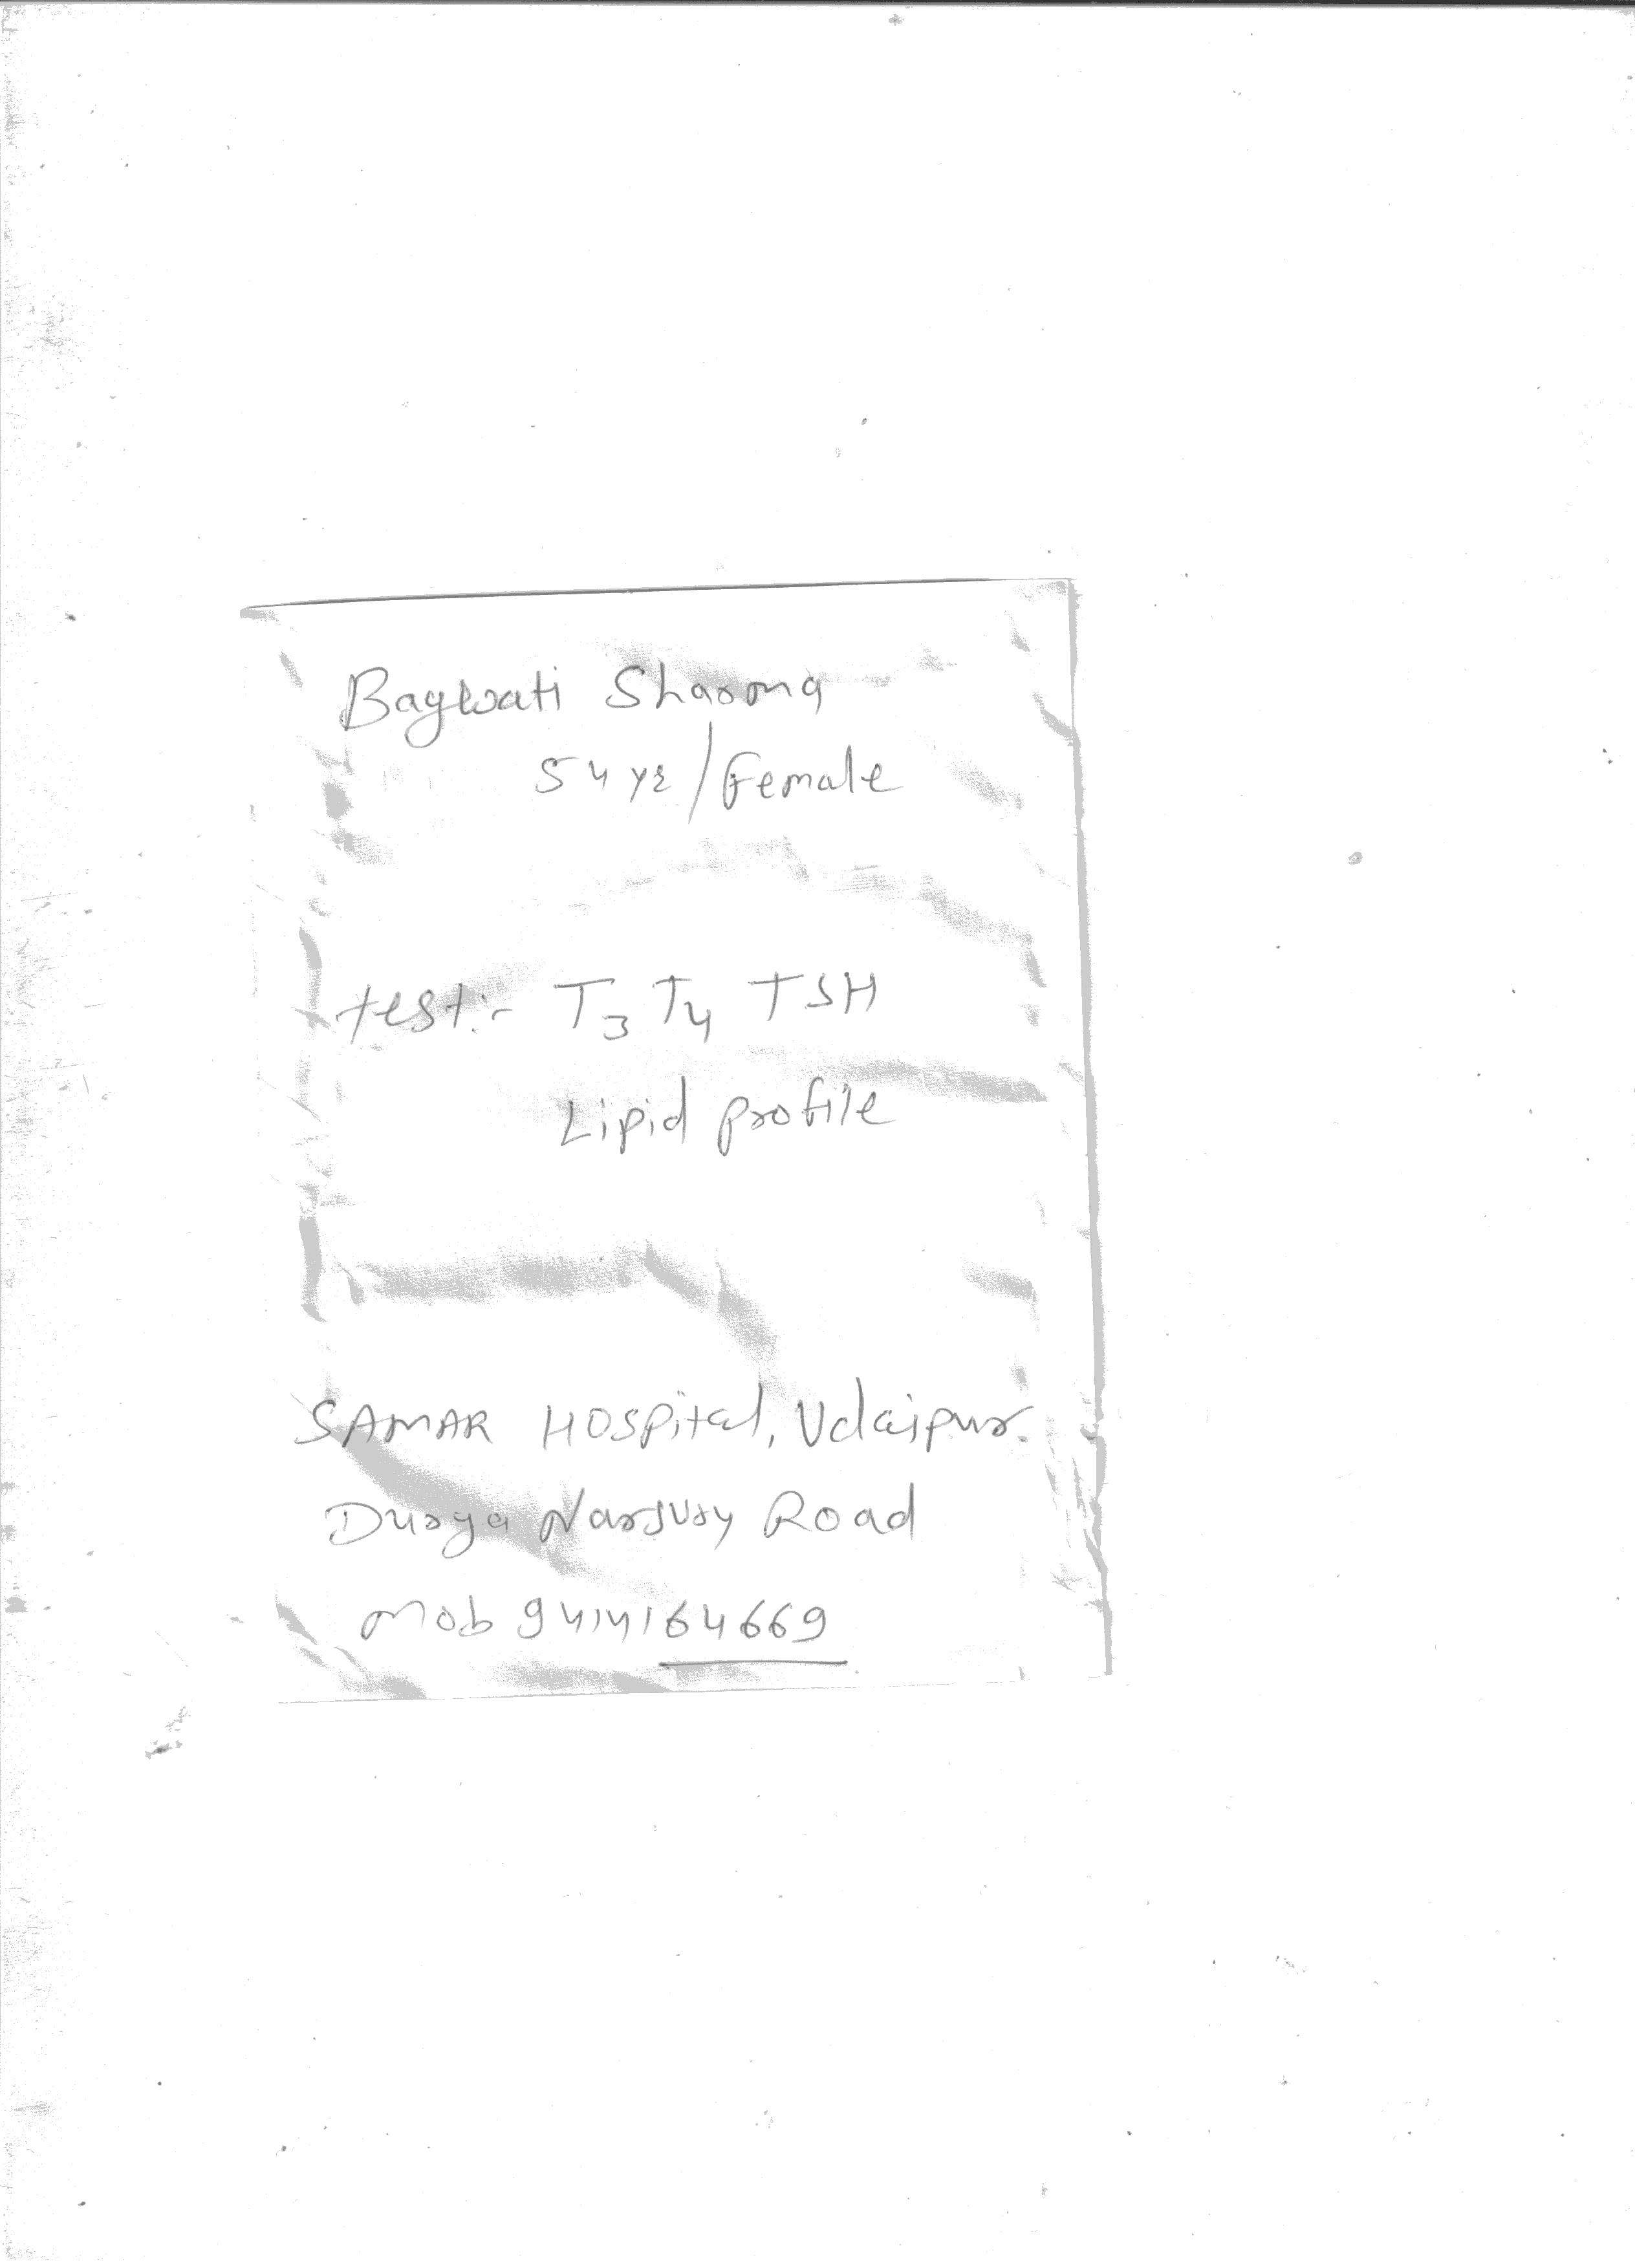 Bagwati Sharma
54 yr / Female
test:- T3 T4 TSH
Lipid profile
SAMAR HOSpital, Udaipur.
Durga Narsury Road
Mob 9414164669